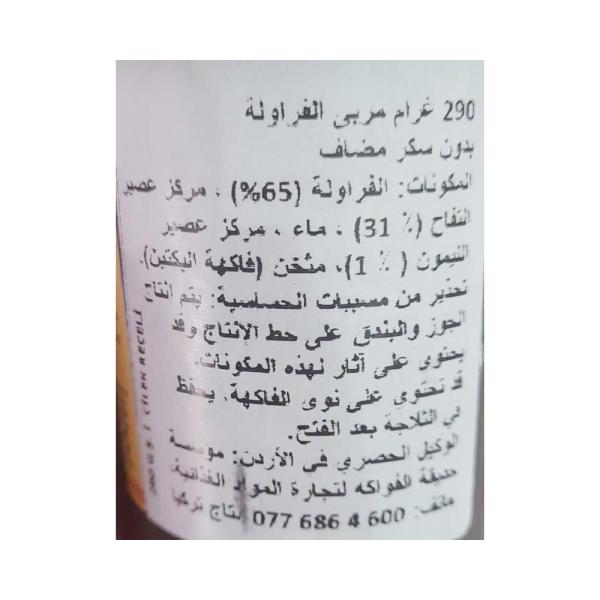 290 غرام مربى الفراولة
بدون سكر مضاف
المكونات: الفراولة (65%) ، مركز عصير
التفاح (31 ٪) ، ماء ، مركز عصير
الليمون (1 ٪)، مثخن (فاكهة البكتين).
تحذير من مسببات الحساسية: يتم انتاج
الجوز والبندق على خط الإنتاج وقد
يحتوي على آثار لهذه المكونات.
قد تحتوي على نوى الفاكهة. يحفظ
في الثلاجة بعد الفتح.
الوكيل الحصري في الأردن: مؤسسة
حديقة الفواكه لتجارة المواد الغذائية.
هاتف: 077 686 4 600 إنتاج تركيا
ÇİLEK REÇELİ